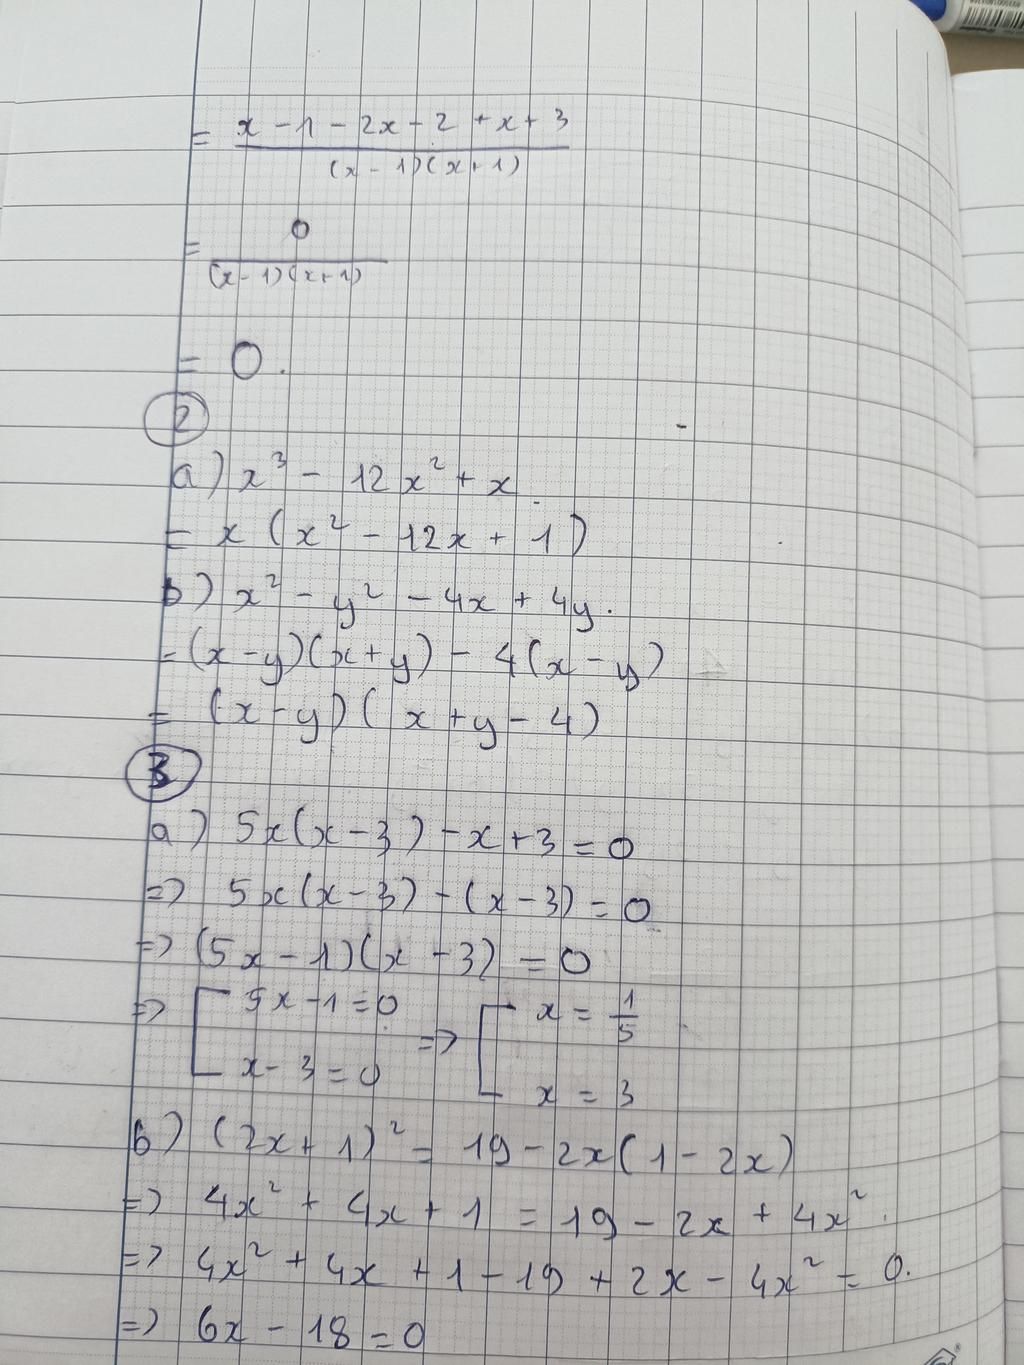 = (x - 1 - 2x - 2 + x + 3) / ((x - 1)(x + 1))
= 0 / ((x - 1)(x + 1))
= 0.
2
a) x³ - 12x² + x
= x (x² - 12x + 1)
b) x² - y² - 4x + 4y.
= (x - y)(x + y) - 4(x - y)
= (x - y)(x + y - 4)
3
a) 5x(x - 3) - x + 3 = 0
=> 5x(x - 3) - (x - 3) = 0
=> (5x - 1)(x - 3) = 0
=> [ 5x - 1 = 0 => [ x = 1/5
x - 3 = 0 x = 3
b) (2x + 1)² = 19 - 2x(1 - 2x)
=> 4x² + 4x + 1 = 19 - 2x + 4x².
=> 4x² + 4x + 1 - 19 + 2x - 4x² = 0.
=> 6x - 18 = 0